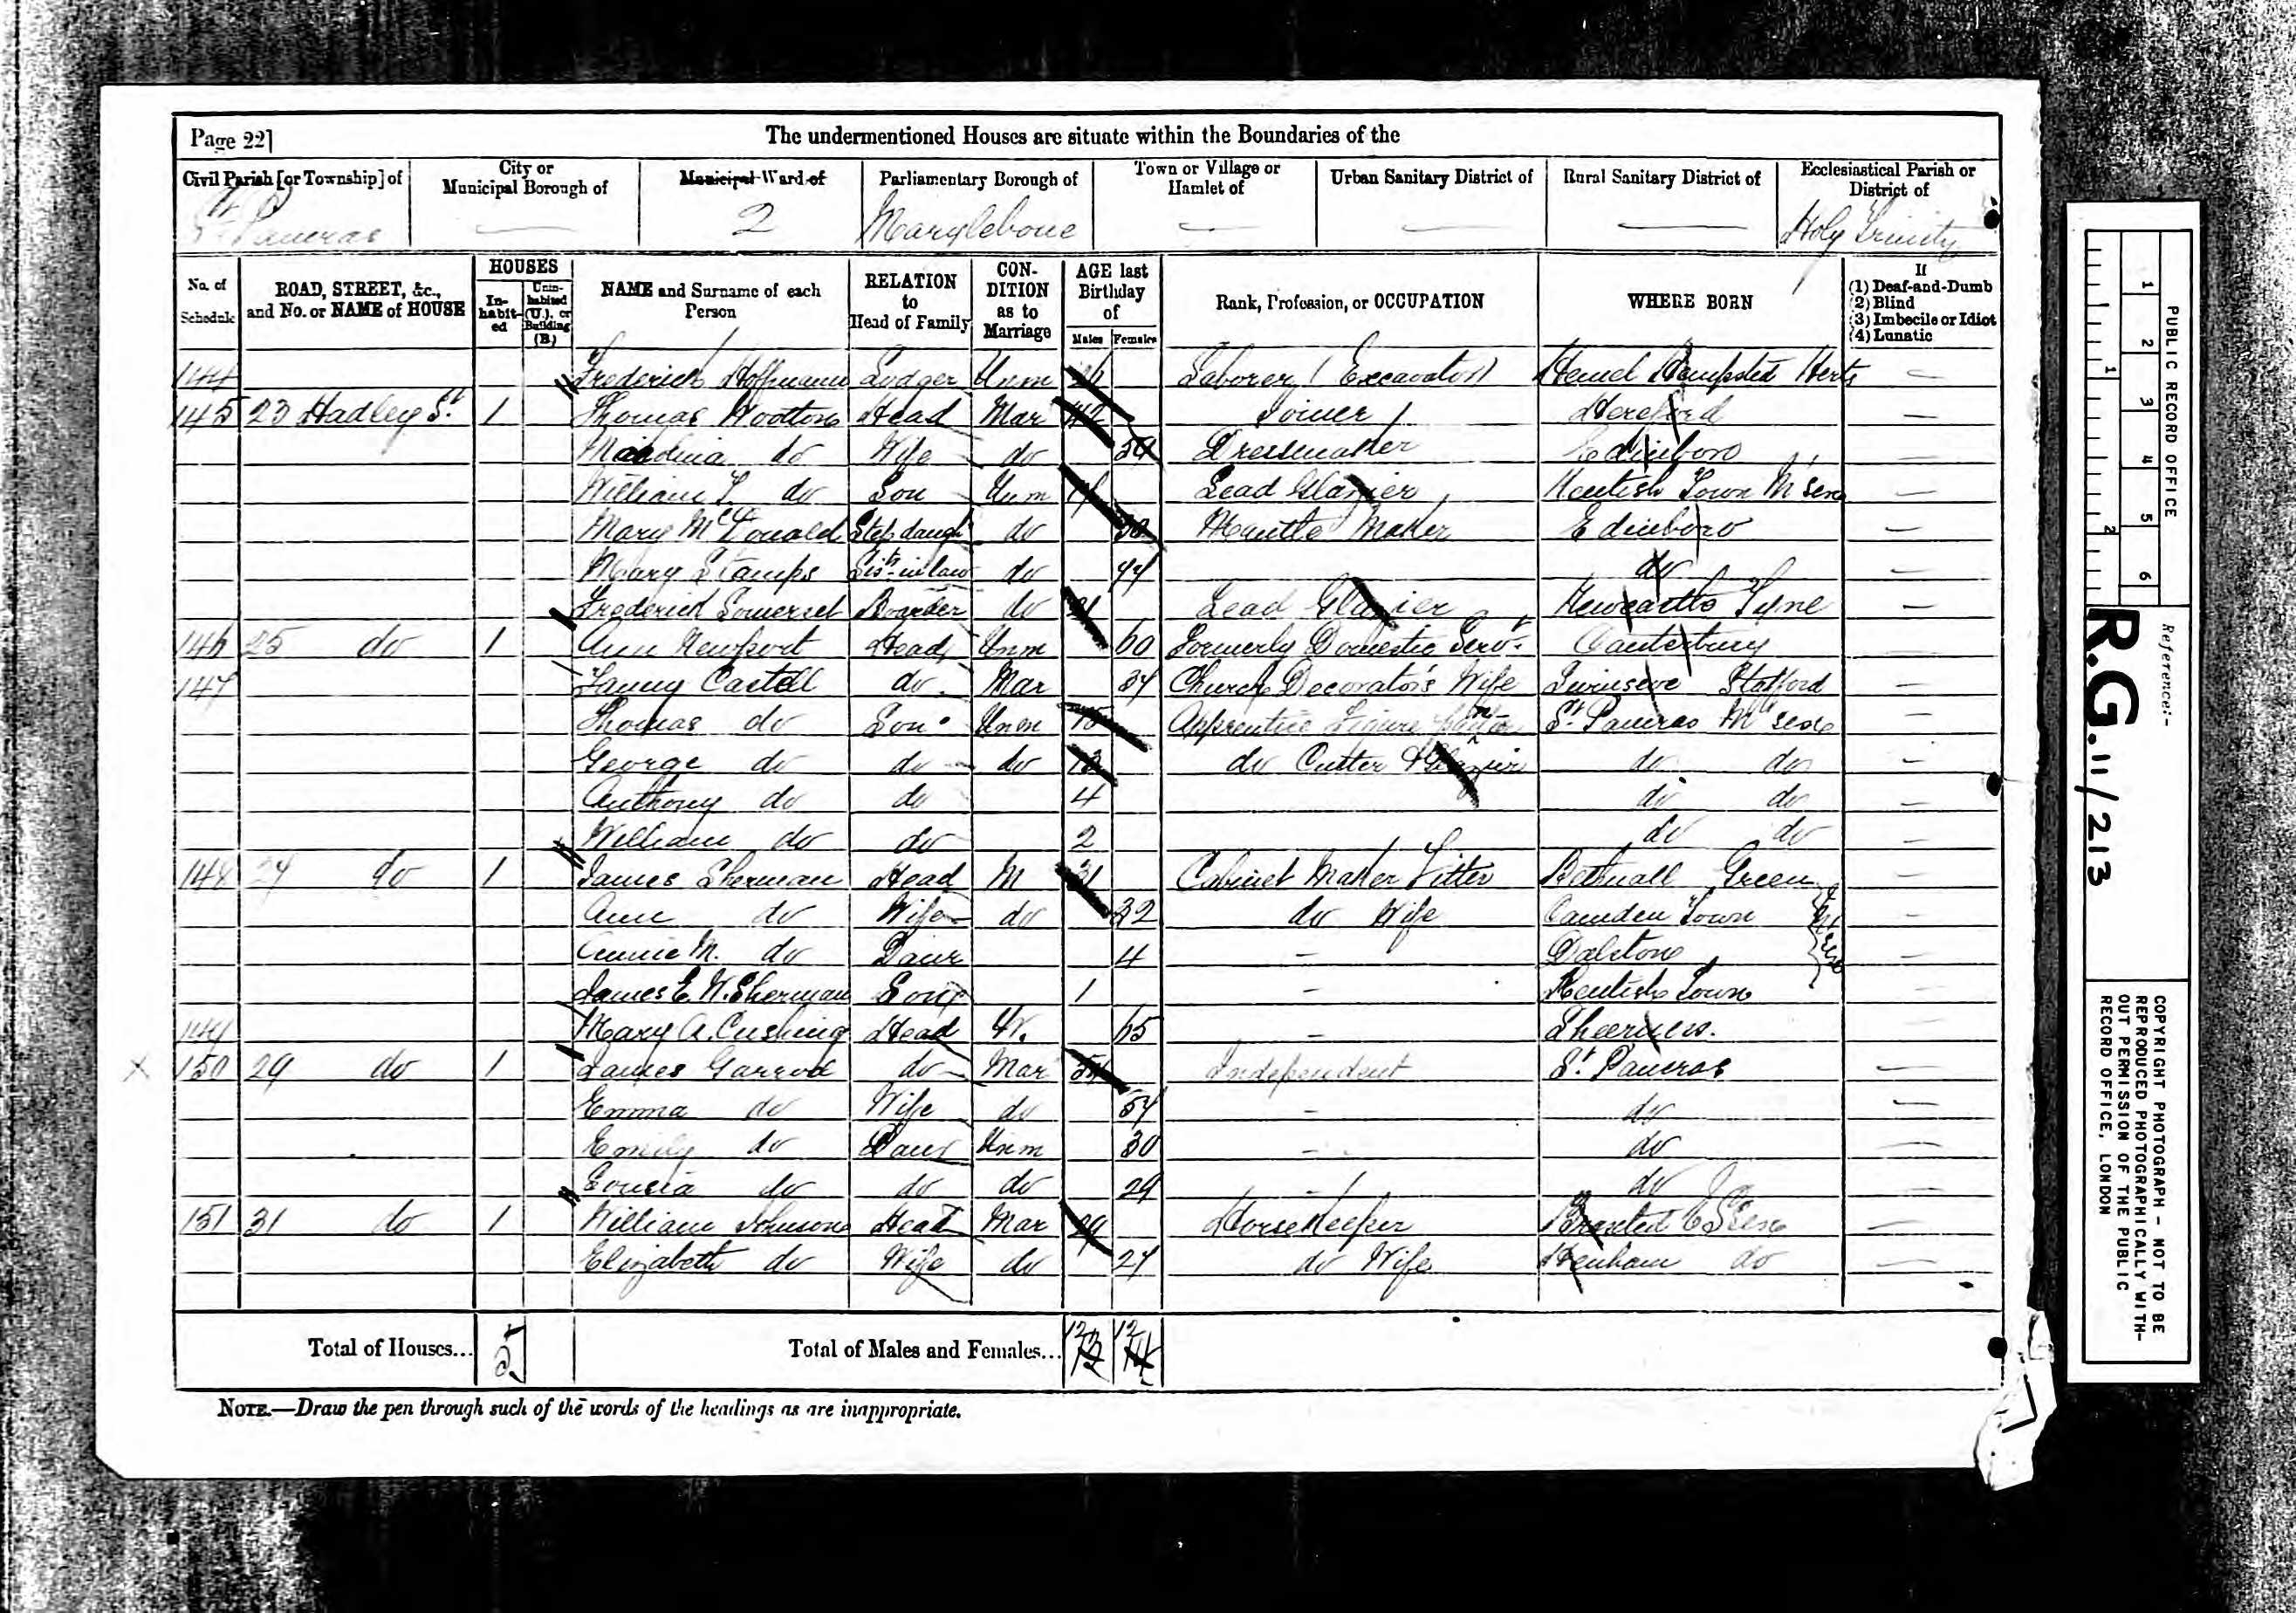 Page 22]
The undermentioned Houses are situate within the Boundaries of the
Civil Parish [or Township] of
City or Municipal Borough of
Municipal Ward of
Parliamentary Borough of
Town or Village or Hamlet of
Urban Sanitary District of
Rural Sanitary District of
Ecclesiastical Parish or District of
St Pancras — 2 Marylebone — — — Holy Trinity
No. of Schedule
ROAD, STREET, &c., and No. or NAME of HOUSE
HOUSES
In-habit-ed
Unin-habited (U.), or Building (B.)
NAME and Surname of each Person
RELATION to Head of Family
CON-DITION as to Marriage
AGE last Birthday of
Males Females
Rank, Profession, or OCCUPATION
WHERE BORN
If
(1) Deaf-and-Dumb
(2) Blind
(3) Imbecile or Idiot
(4) Lunatic
144 Frederick Hoffmann Lodger Unm Laborer (Excavator) Hemel Hempsted Herts —
145 23 Hadley St. 1 Thomas Wootton Head Mar 42 Joiner Hereford —
do Wife do 54 Dressmaker Edinboro —
William T. do Son Unm Lead Glazier Kentish Town M'sex —
Mary McDonald Stepdaugr do 30 Mantle Maker Edinboro —
Mary Stamps Sisr in law do 44 do —
Frederick Somerset Boarder do 21 Lead Glazier Newcastle Tyne —
146 25 do 1 Ann Newport Head Unm 60 Formerly Domestic Servt. Canterbury
147 Fanny Castell do Mar 37 Church Decorator's Wife Stafford —
Thomas do Son Unm 15 Apprentice St. Pancras M'sex —
George do do do 13 do Cutter & Glazier do do —
Anthony do do 4 do do —
William do do 2 do do —
148 27 do 1 James Sherman Head M 31 Cabinet Maker Fitter Bethnall Green —
Ann do Wife do 32 do Wife Camden Town —
Annie M. do Daur 4 — Dalston —
James E. W. Sherman Son 1 — Kentish Town —
M'sex
149 Mary A. Cushing Head W. 65 — Sheerness. —
150 29 do 1 James Garrod do Mar 54 Independent St. Pancras —
Emma do Wife do 54 — do —
Emily do Daur Unm 30 — do —
do do do 29 — do —
151 31 do 1 William Johnson Head Mar 29 HorseKeeper Essex —
Elizabeth do Wife do 27 do Wife Henham do —
Total of Houses... 5
Total of Males and Females... 12 12
NOTE.—Draw the pen through such of the words of the headings as are inappropriate.
PUBLIC RECORD OFFICE
1 2 3 4 5 6
1 2
Reference:-
R.G. 11/213
COPYRIGHT PHOTOGRAPH – NOT TO BE
REPRODUCED PHOTOGRAPHICALLY WITH-
OUT PERMISSION OF THE PUBLIC
RECORD OFFICE, LONDON